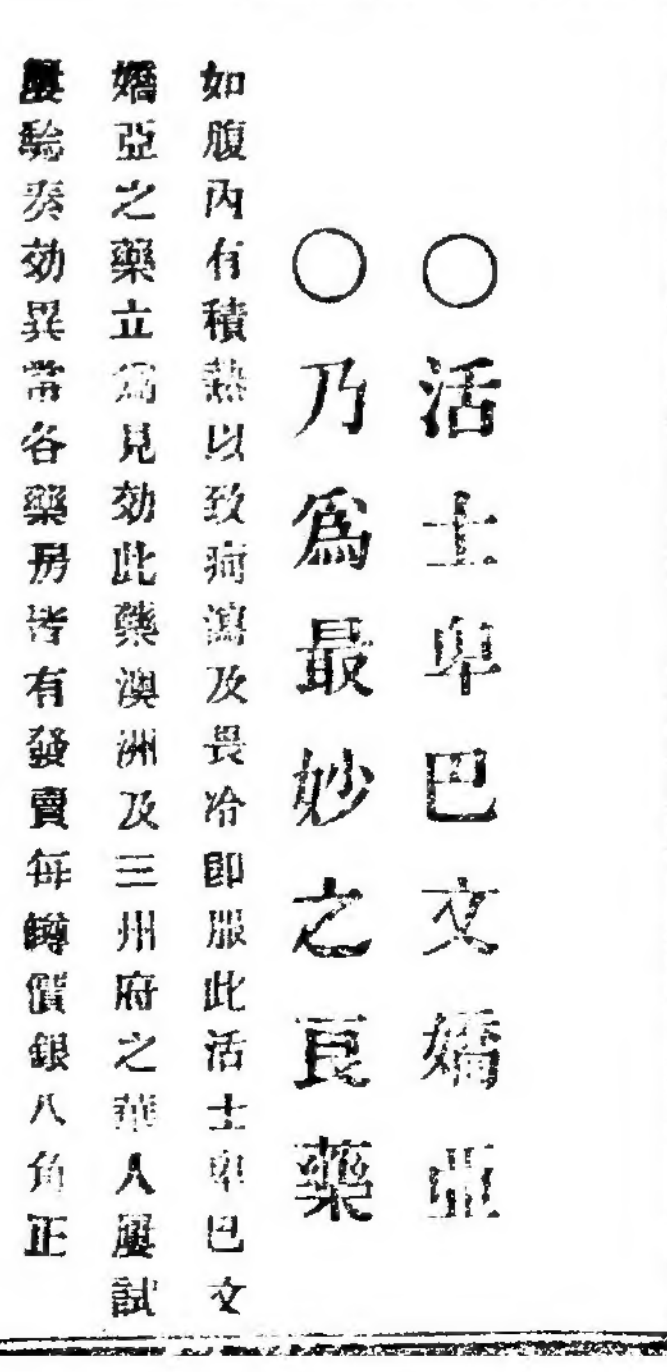 ○活士卑巴文嬌亞
○乃爲最妙之良藥
如腹內有積熱以致痾瀉及畏冷卽服此活士卑巴文
嬌亞之藥立爲見効此藥澳洲及三州府之華人屢試
屢驗奏効異常各藥房皆有發賣每罇價銀八角正